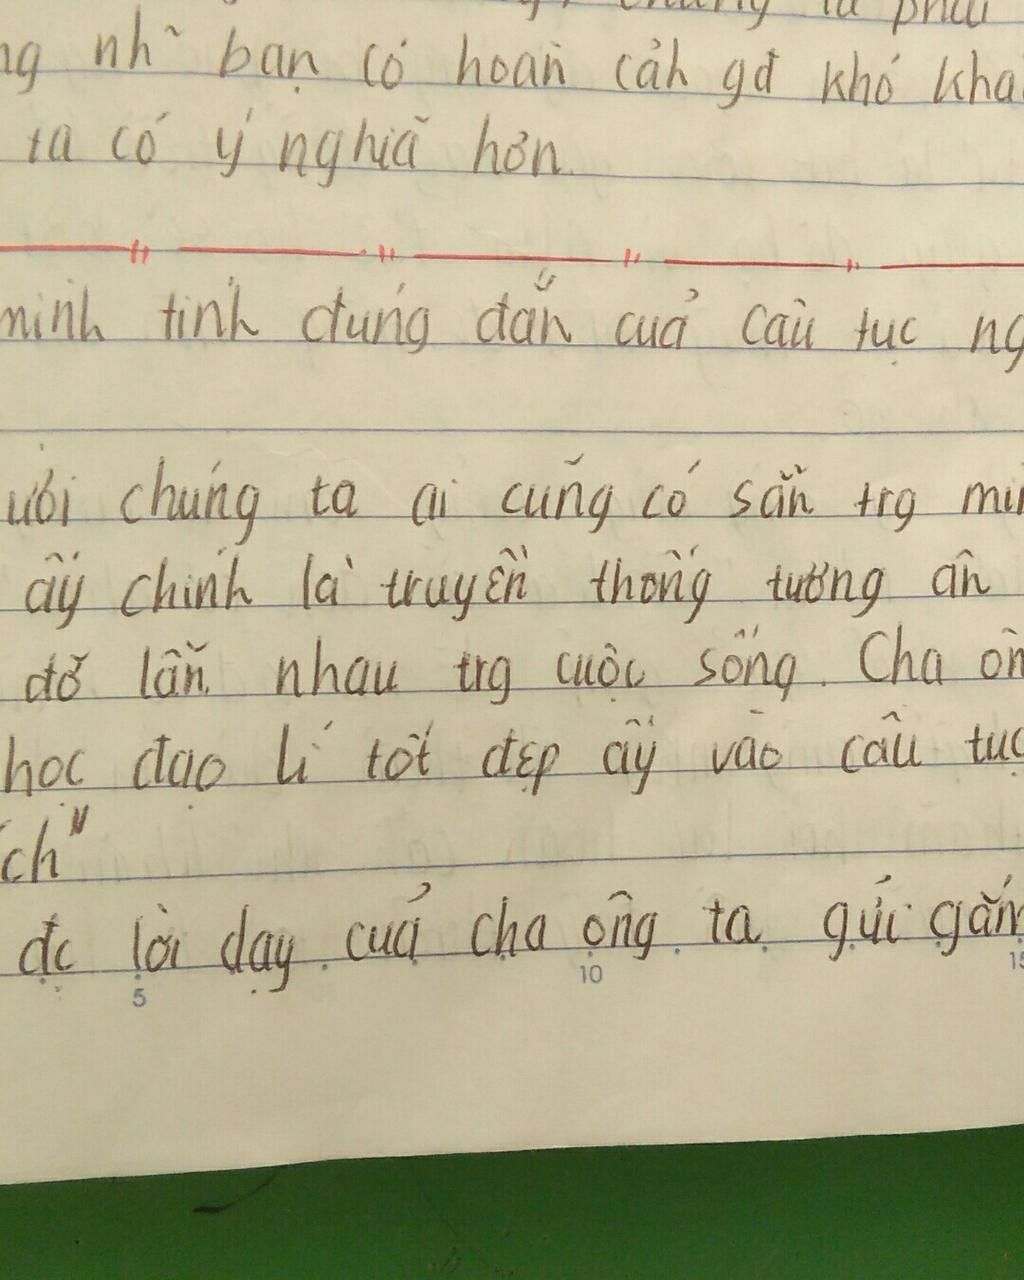 chúng ta phải
ng nh~ bạn có hoàn cảh gđ khó kha
ta có ý nghĩa hơn.
minh tính đúng đắn của câu tục ng
ười chúng ta ai cũng có sẵn trg mìn
ấy chính là truyền thống tương ân
đỡ lẫn nhau trg cuộc sống. Cha ôn
học đạo lí tốt đẹp ấy vào câu tục
ch"
đc lời dạy của cha ông ta gửi gắm
5 10 15